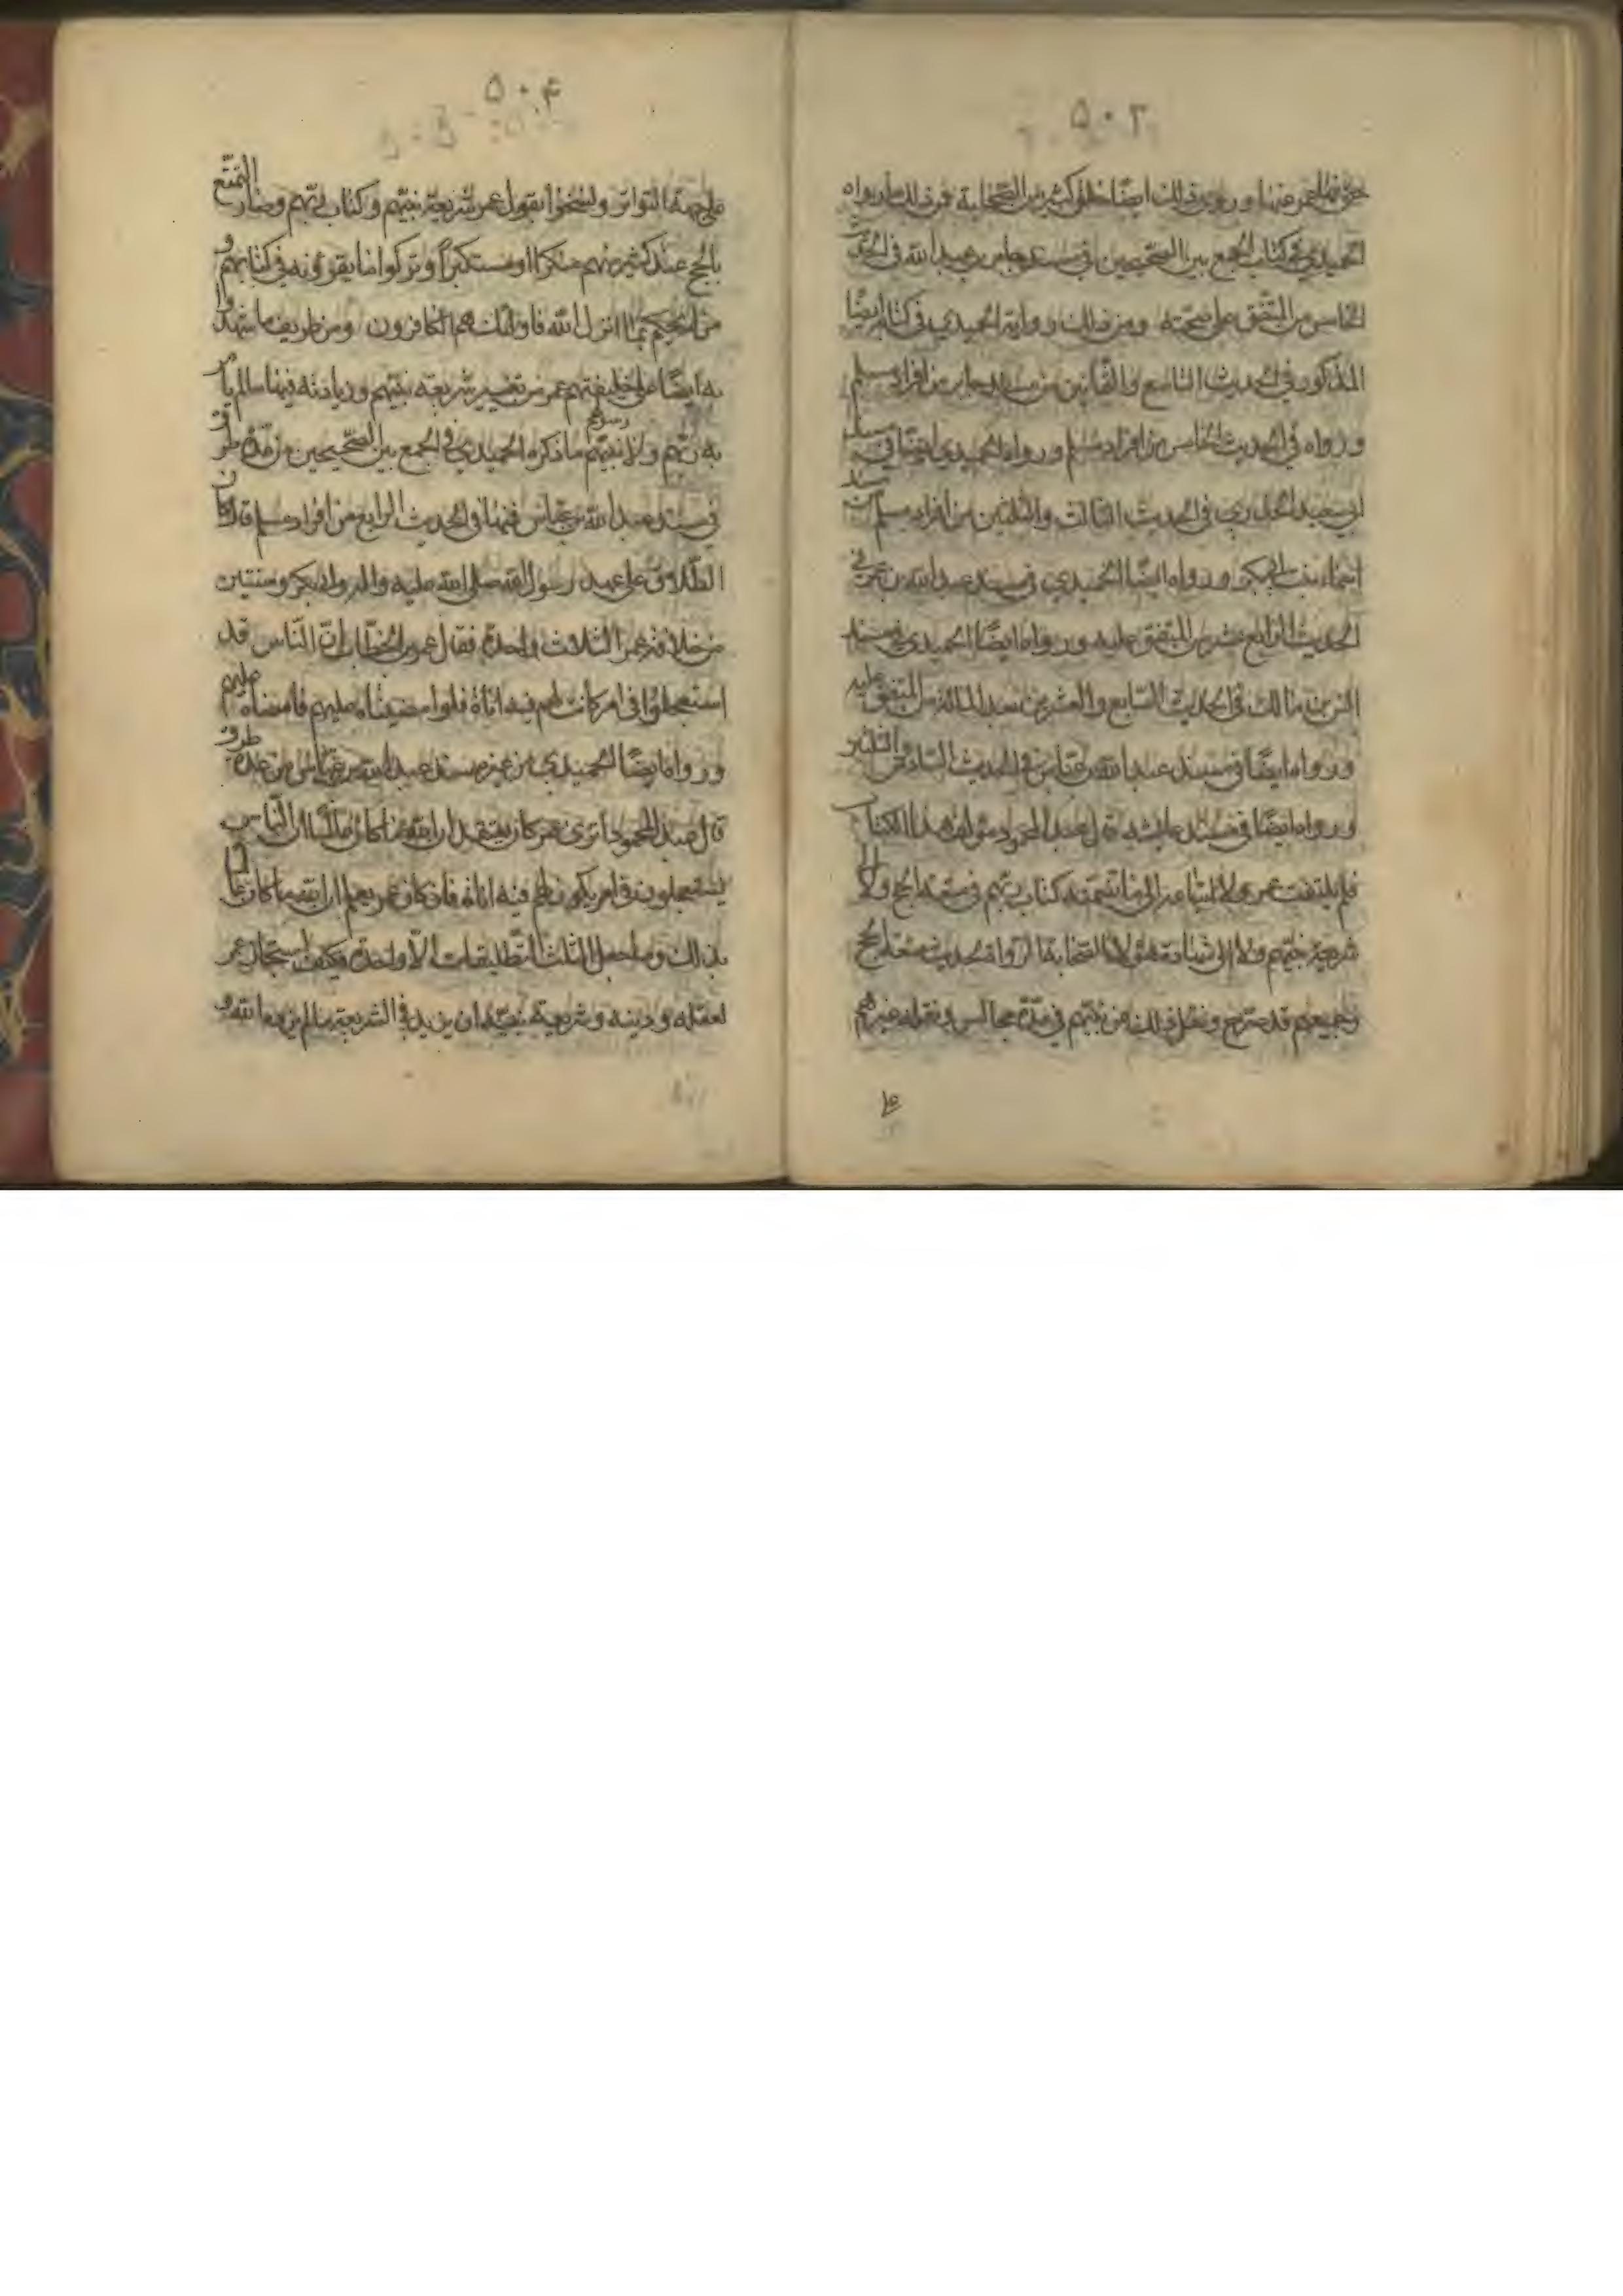 ٥٠٣
عمر منها وروى ذلك ايضا خلق كثير من الصحابة فمن ذلك ما رواه
الحميدي في كتاب الجمع بين الصحيحين في مسند جابر بن عبد الله في الحديث
الخامس من المتفق على صحته ومن ذلك رواية الحميدي في كتابه ايضا
المذكور في الحديث التاسع والثمانين من مسند جابر من افراد مسلم
ورواه في الحديث الخامس من افراد مسلم ورواه الحميدي ايضا في مسند
ابي سعيد الخدري في الحديث الثالث والثلثين من افراد مسلم
اسماء بنت ابي بكر ورواه ايضا الحميدي في مسند عبد الله بن عمر في
الحديث الرابع عشر من المتفق عليه ورواه ايضا الحميدي في مسند
انس بن مالك في الحديث السابع والعشرين بعد المائة من المتفق عليه
ورواه ايضا في مسند عبد الله بن عباس في الحديث السادس والثلثين
ورواه ايضا في مسند عايشه قال عبد المحمود مؤلف هذا الكتاب
فلم يلتفت عمر ولا اتباعه الى ما تضمنه كتاب ربهم في متعة الحج ولا الى
شريعة نبيهم ولا الى شهادة هؤلاء الصحابة الرواة لحديث متعة الحج
وجميعهم قد صرح ونقل ذلك عن نبيهم في عدة مجالس ونقله غيرهم
٥٠٤
على جهة التواتر ونسخوا بقول عمر شريعة نبيهم وكتاب ربهم وصار التمتع
بالحج عند كثير منهم منكرا او مستكبرا وتركوا ما يقرؤنه في كتابهم و
من لم يحكم بما انزل الله فاولئك هم الكافرون ومن طريف ما شهدوا
به ايضا على خليفتهم عمر من تغيير شريعة نبيهم وزيادته فيها ما لم يأمر
به ربهم ولا نبيهم ما ذكره الحميدي في الجمع بين الصحيحين من عدة طرق
في مسند عبد الله بن عباس فمنها في الحديث الرابع من افراد مسلم قال كان
الطلاق على عهد رسول الله صلى الله عليه واله وابي بكر وسنتين
من خلافة عمر الثلاث واحدة فقال عمر بن الخطاب ان الناس قد
استعجلوا في امر كانت لهم فيه اناة فلو امضيناه عليهم فامضاه عليهم
ورواه ايضا الحميدي من غير مسند عبد الله بن عباس من عدة طرق
قال عبد المحمود اترى عمر كان يعتقد ان الله ما كان عالما ان الناس
يستعجلون في امر يكون لهم فيه اناة فان كان عمر يعلم ان الله كان عالما
بذلك وما جعل الثلث التطليقات الا واحدة فكيف استجاز عمر
لعقله ودينه وشريعة نبيه ان يزيد في الشريعة ما لم يزدها الله و